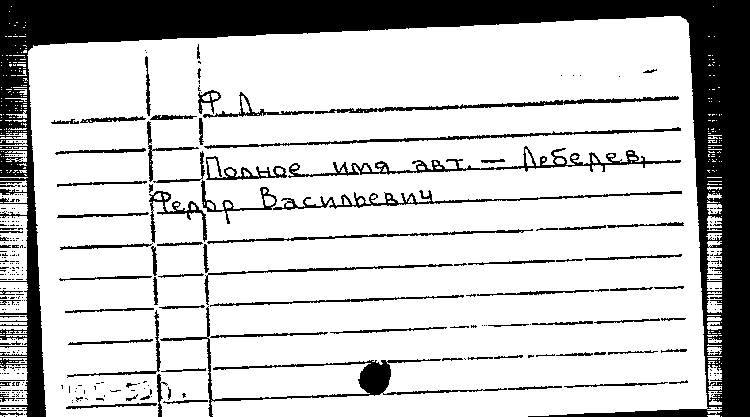 Ф. Л.
Полное имя авт. — Лебедев,
Федор Васильевич